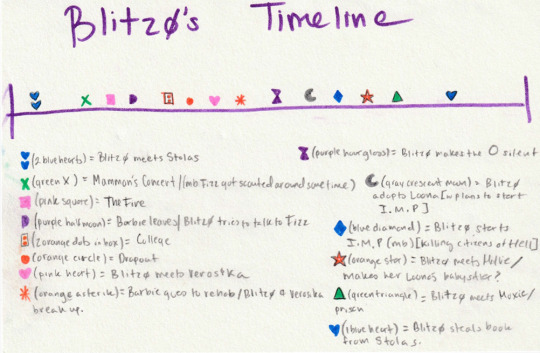 Blitzø's Timeline
(2 blue hearts) = Blitzø meets Stolas
(green X) = Mammon's Concert/(mb Fizz got scouted around sometime)
(pink square) = The Fire
(purple half moon) = Barbie leaves/Blitzø tries to talk to Fizz
(2 orange dots in box) = College
(orange circle) = Dropout
(pink heart) = Blitzø meets Verostka
(orange asterik) = Barbie goes to rehab/Blitzø & Verostka
break up.
(purple hourglass) = Blitzø makes the O silent
(gray crescent moon) = Blitzø
adopts Loona [u plans to start
I.M.P]
(blue diamond) = Blitzø starts
I.M.P (mb) [killing citizens of Hell]
(orange star) = Blitzø meets Millie/
makes her Loona's babysitter?
(green triangle) = Blitzø meets Moxie/
prison
(1 blue heart) = Blitzø steals book
from Stolas.